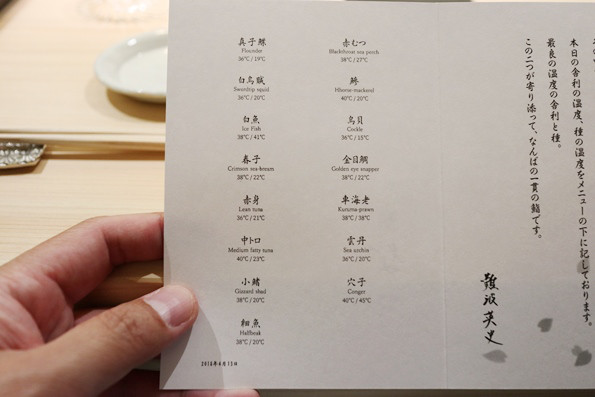 真子鰈
Flounder
36°C / 19°C
白烏賊
Swordtip squid
36°C / 20°C
白魚
Ice Fish
38°C / 41°C
春子
Crimson sea-bream
38°C / 22°C
赤身
Lean tuna
36°C / 21°C
中トロ
Medium fatty tuna
40°C / 23°C
小鰭
Gizzard shad
38°C / 20°C
細魚
Halfbeak
38°C / 20°C
赤むつ
Blackthroat sea perch
38°C / 27°C
鯵
Hborse-mackerel
40°C / 20°C
鳥貝
Cockle
36°C / 15°C
金目鯛
Golden eye snapper
38°C / 22°C
車海老
Kuruma-prawn
38°C / 38°C
雲丹
Sea urchin
36°C / 20°C
穴子
Conger
40°C / 45°C
本日の舎利の温度、種の温度をメニューの下に記しております。
最良の温度の舎利と種。
この二つが寄り添って、なんばの一貫の鮨です。
難波英史
2018年4月13日